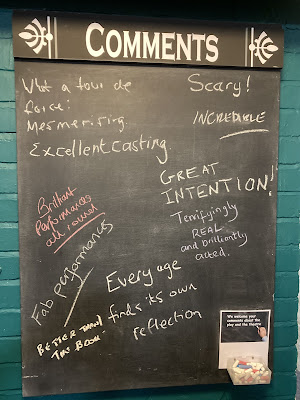 COMMENTS
What a tour de
force!
Mesmerising.
Excellent casting
Scary!
INCREDIBLE
GREAT
INTENTION!
Terrifyingly
REAL
and brilliantly
acted.
Brilliant
Performances
all round
Fab performances
BETTER THAN
THE BOOK
Every age
finds its own
reflection
We welcome your
comments about the
play and the theatre